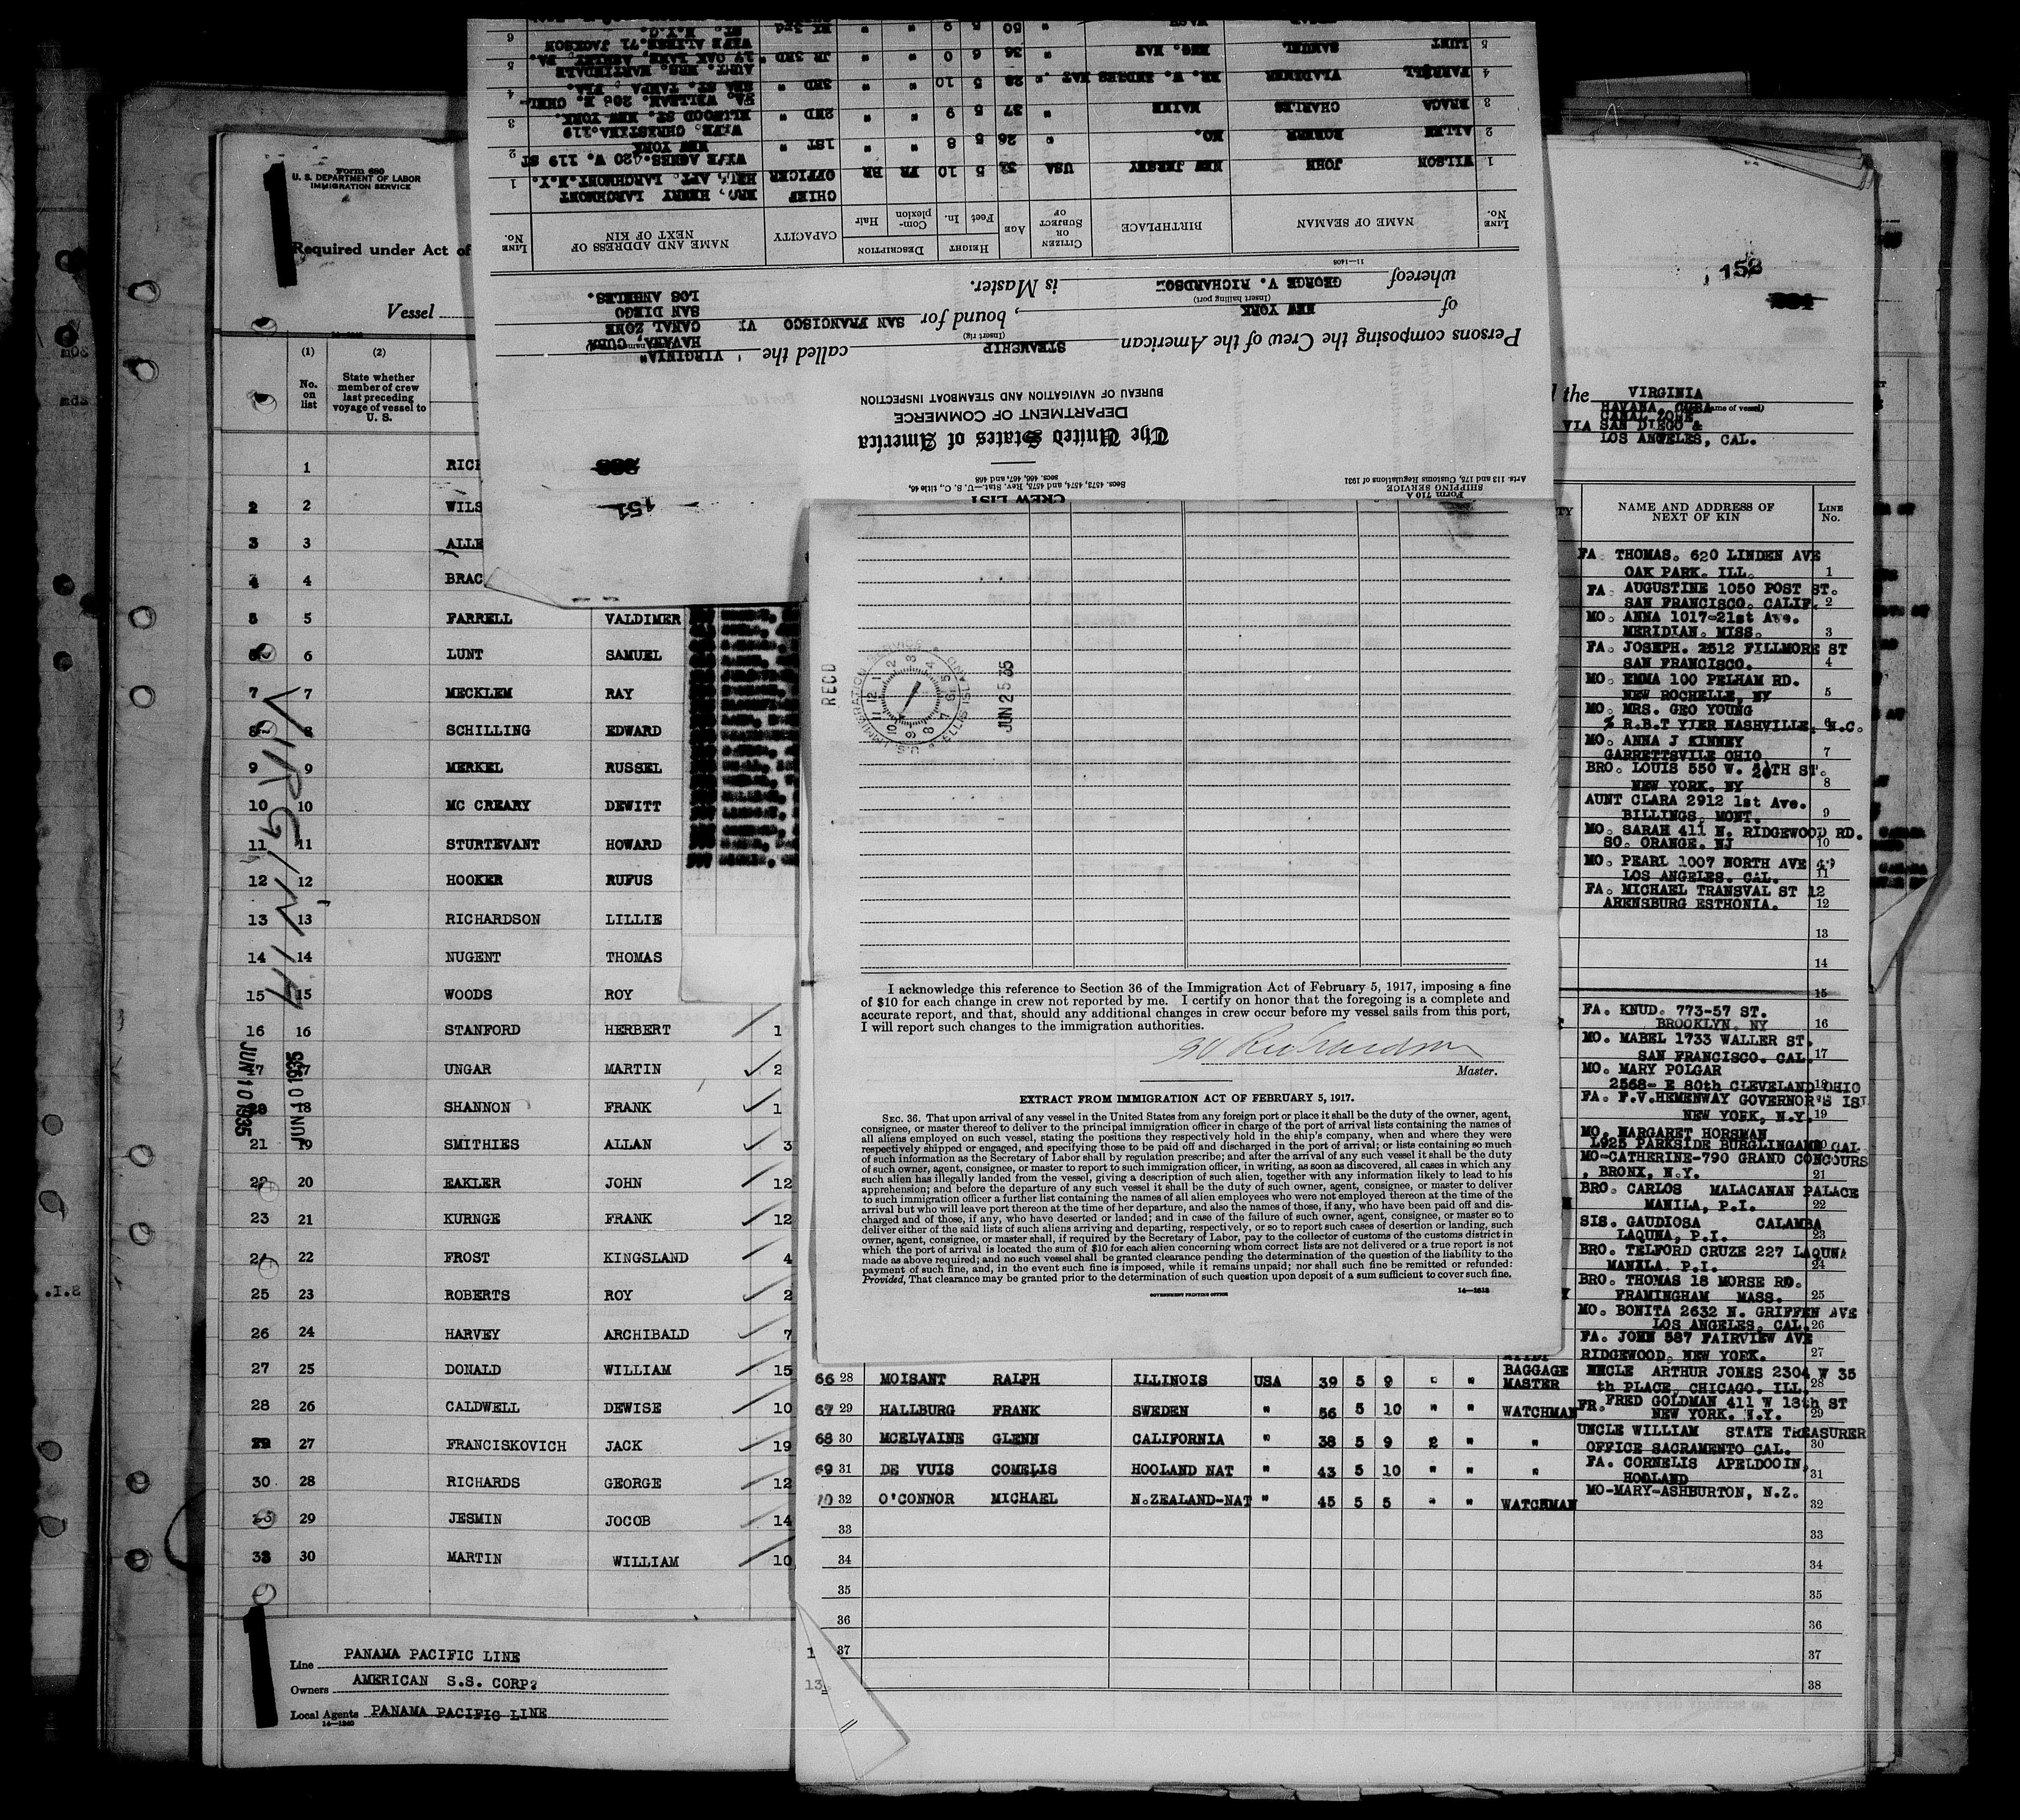 Form 680
U. S. DEPARTMENT OF LABOR
IMMIGRATION SERVICE
Required under Act of
Vessel
(1) (2)
No. on list
State whether member of crew last preceding voyage of vessel to U. S.
1 RICH
2 2 WILS
3 3 ALLE
4 4 BRAC
5 5 FARRELL VALDIMER
6 6 LUNT SAMUEL
7 7 MECKLEM RAY
8 8 SCHILLING EDWARD
9 9 MERKEL RUSSEL
10 10 MC CREARY DEWITT
11 11 STURTEVANT HOWARD
12 12 HOOKER RUFUS
13 13 RICHARDSON LILLIE
14 14 NUGENT THOMAS
15 15 WOODS ROY
16 16 STANFORD HERBERT 1
17 17 UNGAR MARTIN 2
18 SHANNON FRANK 1
21 19 SMITHIES ALLAN 3
22 20 EAKLER JOHN 12
23 21 KURNGE FRANK 12
24 22 FROST KINGSLAND 4
25 23 ROBERTS ROY 2
26 24 HARVEY ARCHIBALD 7
27 25 DONALD WILLIAM 15
28 26 CALDWELL DEWISE 10
29 27 FRANCISKOVICH JACK 19
30 28 RICHARDS GEORGE 12
29 JESMIN JOCOB 14
30 MARTIN WILLIAM 10
VIRGINIA
JUN 10 1935
JUN 10 1935
Line PANAMA PACIFIC LINE
Owners AMERICAN S.S. CORP?
Local Agents PANAMA PACIFIC LINE
14—1240
Form 710 A
SHIPPING SERVICE
Arts. 113 and 175, Customs Regulations of 1931
CREW LIST
Secs. 4573, 4574, and 4575, Rev. Stat.—U. S. C., title 46,
secs. 466, 467, and 468
151
The United States of America
DEPARTMENT OF COMMERCE
BUREAU OF NAVIGATION AND STEAMBOAT INSPECTION
Persons composing the Crew of the American STEAMSHIP called the "VIRGINIA"
(Insert rig)
HAVANA, CUBA
CANAL ZONE
of NEW YORK, bound for SAN FRANCISCO VI
SAN DIEGO
(Insert hailing port)
LOS ANGELES.
whereof GEORGE V. RICHARDSON is Master.
11—1408
LINE No.
NAME OF SEAMAN
BIRTHPLACE
CITIZEN OR SUBJECT OF
Age
HEIGHT
Feet In.
DESCRIPTION
Complexion Hair
CAPACITY
NAME AND ADDRESS OF NEXT OF KIN
LINE No.
1 WILSON JOHN NEW JERSEY USA 5 10 FR BR CHIEF OFFICER BRO. HENRY LARCHMONT
APT. LARCHMONT.N.Y. 1
2 ALLEN ROBERT MO. " 26 5 8 " " 1ST " WIFE AGNES.420 W. 119 ST
NEW YORK 2
3 BRAGA CHARLES MAINE " 37 5 9 " " 2ND " WIFE CHRISTINA.119
ELLWOOD ST. NEW YORK. 3
4 FARRELL VLADIMER BR. W. INDIES NAT " 28 5 10 " " 3RD " FA. WILLIAM. 206 E.
ST. TAMPA, FLA. 4
5 LUNT SAMUEL ENG. NAT " 36 6 0 " " JR 3RD " AUNT. MRS. MARTINDALE
17 OAK LANE, PA. 5
50 5 9 " " WIFE ALIENE.71 JACKSON
ST. N.Y.C. 6
152
the VIRGINIA
(name of vessel)
HAVANA, CUBA
CANAL ZONE
VIA SAN DIEGO &
LOS ANGELES, CAL.
NAME AND ADDRESS OF NEXT OF KIN
LINE No.
FA THOMAS. 620 LINDEN AVE
OAK PARK. ILL. 1
FA. AUGUSTINE 1050 POST ST.
SAN FRANCISCO. CALIF. 2
MO. ANNA 1017-21st Ave.
MERIDIAN. MISS. 3
FA. JOSEPH. 2512 FILLMORE ST
SAN FRANCISCO. 4
MO. EMMA 100 PELHAM RD.
NEW ROCHELLE, NY 5
MO. MRS. GEO YOUNG
% R.B.T YJER NASHVILLE, N.C. 6
MO. ANNA J KINNEY
GARRETTSVILE OHIO 7
BRO. LOUIS 550 W. 20TH ST.
NEW YORK. NY 8
AUNT CLARA 2912 1st Ave.
BILLINGS, MONT. 9
MO. SARAH 411 N. RIDGEWOOD RD.
SO. ORANGE. NJ 10
MO. PEARL 1007 NORTH AVE 49
LOS ANGELES. CAL. 11
FA. MICHAEL TRANSVAL ST 12
ARENSBURG ESTHONIA. 12
13
14
15
FA. KNUD. 773-57 ST.
BROOKLYN. NY 16
MO. MABEL 1733 WALLER ST.
SAN FRANCISCO. CAL. 17
MO. MARY POLGAR
2568- E 80th CLEVELAND OHIO 18
FA. F.V.HEMENWAY GOVERNOR'S IST
NEW YORK, N.Y. 19
MO. MARGARET HORSMAN
1925 PARKSIDE BURLINGAME CAL 20
MO-CATHERINE-790 GRAND CONCOURS
, BRONX, N.Y. 21
BRO. CARLOS MALACANAN PALACE
MANILA, P.I. 22
SIS. GAUDIOSA CALAMBA
LAQUNA, P.I. 23
BRO. TELFORD CRUZE 227 LAQUNA
MANILA. P.I. 24
BRO. THOMAS 18 MORSE RD.
FRAMINGHAM MASS. 25
MO. BONITA 2632 N. GRIFFEN AVE
LOS ANGELES, CAL. 26
FA. JOHN 587 FAIRVIEW AVE
RIDGEWOOD, NEW YORK. 27
RECD
U.S. IMMIGRATION SERVICE * ELLIS ISLAND *
JUN 25 35
I acknowledge this reference to Section 36 of the Immigration Act of February 5, 1917, imposing a fine
of $10 for each change in crew not reported by me. I certify on honor that the foregoing is a complete and
accurate report, and that, should any additional changes in crew occur before my vessel sails from this port,
I will report such changes to the immigration authorities.
GV Richardson
Master.
EXTRACT FROM IMMIGRATION ACT OF FEBRUARY 5, 1917.
SEC. 36. That upon arrival of any vessel in the United States from any foreign port or place it shall be the duty of the owner, agent,
consignee, or master thereof to deliver to the principal immigration officer in charge of the port of arrival lists containing the names of
all aliens employed on such vessel, stating the positions they respectively hold in the ship's company, when and where they were
respectively shipped or engaged, and specifying those to be paid off and discharged in the port of arrival; or lists containing so much
of such information as the Secretary of Labor shall by regulation prescribe; and after the arrival of any such vessel it shall be the duty
of such owner, agent, consignee, or master to report to such immigration officer, in writing, as soon as discovered, all cases in which any
such alien has illegally landed from the vessel, giving a description of such alien, together with any information likely to lead to his
apprehension; and before the departure of any such vessel it shall be the duty of such owner, agent, consignee, or master to deliver
to such immigration officer a further list containing the names of all alien employees who were not employed thereon at the time of the
arrival but who will leave port thereon at the time of her departure, and also the names of those, if any, who have been paid off and dis-
charged and of those, if any, who have deserted or landed; and in case of the failure of such owner, agent, consignee, or master so to
deliver either of the said lists of such aliens arriving and departing, respectively, or so to report such cases of desertion or landing, such
owner, agent, consignee, or master shall, if required by the Secretary of Labor, pay to the collector of customs of the customs district in
which the port of arrival is located the sum of $10 for each alien concerning whom correct lists are not delivered or a true report is not
made as above required; and no such vessel shall be granted clearance pending the determination of the question of the liability to the
payment of such fine, and, in the event such fine is imposed, while it remains unpaid; nor shall such fine be remitted or refunded:
Provided, That clearance may be granted prior to the determination of such question upon deposit of a sum sufficient to cover such fine.
GOVERNMENT PRINTING OFFICE
14—1618
66 28 MOISANT RALPH ILLINOIS USA 39 5 9 " " BAGGAGE MASTER UNCLE ARTHUR JONES 2304 W 35
th PLACE, CHICAGO. ILL. 28
67 29 HALLBURG FRANK SWEDEN " 56 5 10 " " WATCHMAN FR. FRED GOLDMAN 411 W 13th ST
NEW YORK. N.Y. 29
68 30 MCELVAINE GLENN CALIFORNIA " 38 5 9 2 " " UNCLE WILLIAM STATE TREASURER
OFFICE SACRAMENTO CAL. 30
69 31 DE VUIS COMELIS HOOLAND NAT " 43 5 10 " " " FA. CORNELIS APELDOOIN,
HOOLAND 31
70 32 O'CONNOR MICHAEL N.ZEALAND-NAT " 45 5 5 " " WATCHMAN MO-MARY-ASHBURTON, N.Z. 32
33 33
34 34
35 35
36 36
37 37
38